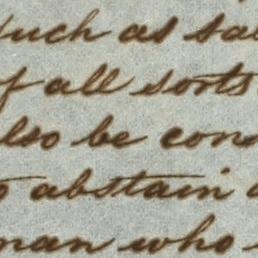 such as sa
f all sorts
also be con
to abstain
man who